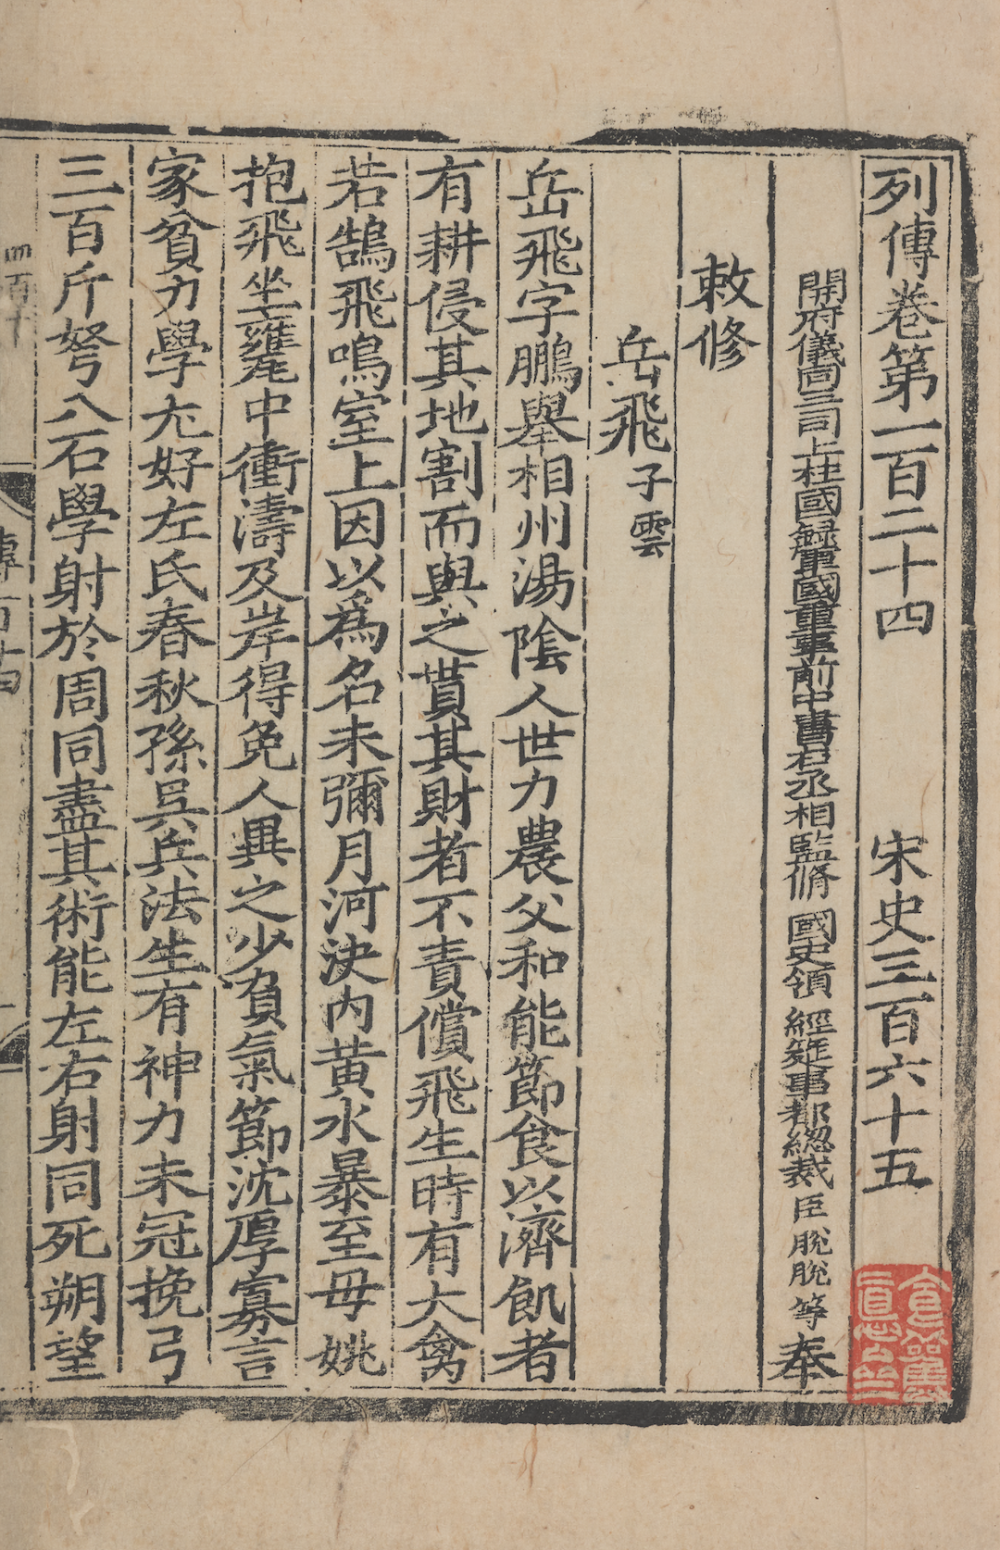 列傳卷第一百二十四 宋史三百六十五
開府儀同三司上柱國錄軍國重事前中書右丞相監脩 國史領 經筵事都總裁臣脫脫等奉
敕修
岳飛子雲
岳飛字鵬舉相州湯陰人世力農父和能節食以濟飢者
有耕侵其地割而與之貰其財者不責償飛生時有大禽
若鵠飛鳴室上因以爲名未彌月河決內黃水暴至毋姚
抱飛坐甕中衝濤及岸得免人異之少負氣節沈厚寡言
家貧力學尤好左氏春秋孫吳兵法生有神力未冠挽弓
三百斤弩八石學射於周同盡其術能左右射同死朔望